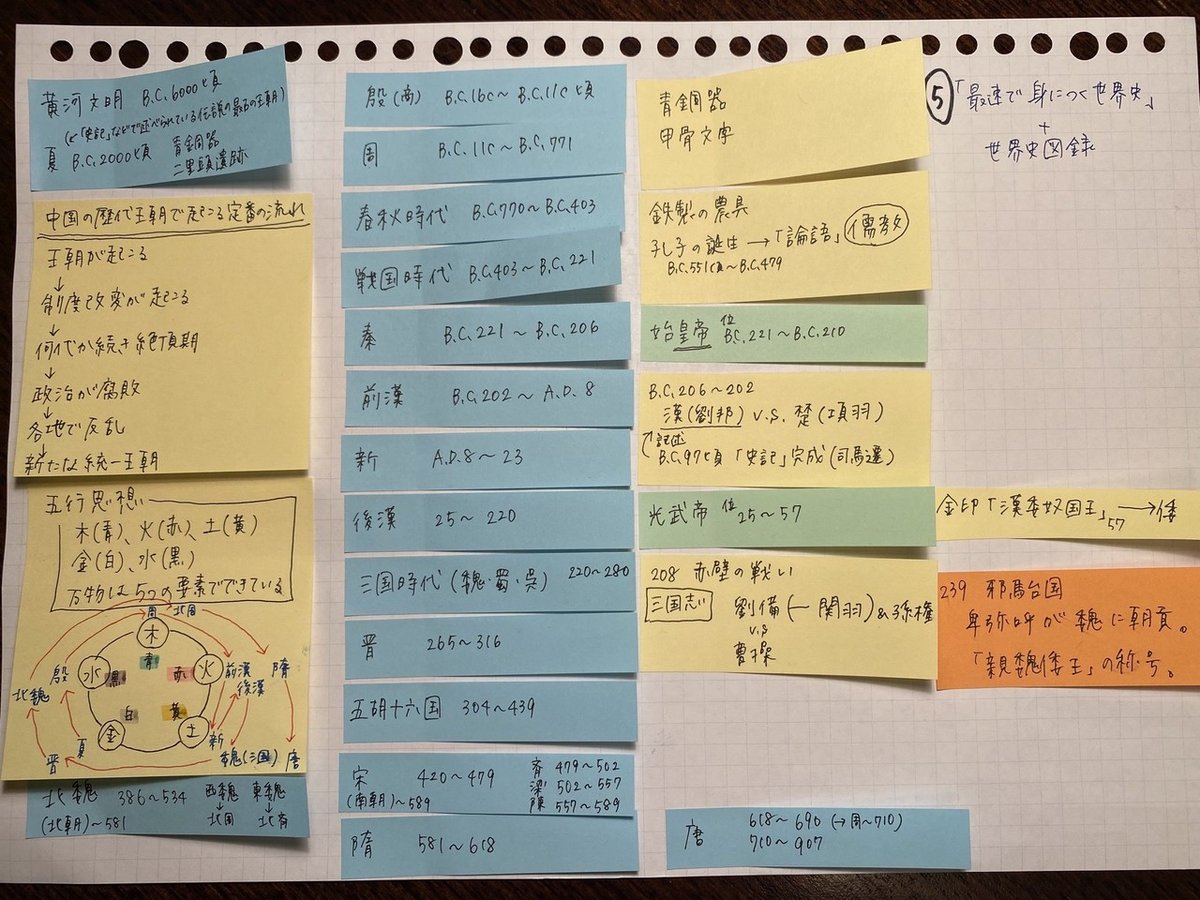 黄河文明 B.C.6000頃
(と「史記」などで述べられている伝説の最古の王朝)
夏 B.C.2000頃 青銅器
二里頭遺跡
中国の歴代王朝で起こる定番の流れ
王朝が起こる
↓
制度改変が起こる
↓
何代か続き絶頂期
↓
政治が腐敗
↓
各地で反乱
↓
新たな統一王朝
五行思想
木(青)、火(赤)、土(黄)
金(白)、水(黒)
万物は5つの要素でできている
周 北周
木
青
水 黒 赤 火
殷 北魏
前漢 後漢 隋
白 黄
金 土
夏 晋
新 魏(三国) 唐
北魏 386~534 西魏 東魏
↓ ↓
(北朝)~581 北周 北斉
殷(商) B.C.16c~B.C.11c頃
周 B.C.11c~B.C.771
春秋時代 B.C.770~B.C.403
戦国時代 B.C.403~B.C.221
秦 B.C.221~B.C.206
前漢 B.C.202~A.D.8
新 A.D.8~23
後漢 25~220
三国時代(魏・蜀・呉) 220~280
晋 265~316
五胡十六国 304~439
宋 420~479
(南朝)~589
斉 479~502
梁 502~557
陳 557~589
隋 581~618
青銅器
甲骨文字
鉄製の農具
孔子の誕生→「論語」 儒教
B.C.551頃~B.C.479
始皇帝 位 B.C.221~B.C.210
B.C.206~202
漢(劉邦) V.S. 楚(項羽)
記述
B.C.97頃 「史記」完成(司馬遷)
光武帝 位 25~57
208 赤壁の戦い
三国志 劉備(ー関羽)&孫権
V.S
曹操
唐 618~690 (→周~710)
710~907
⑤「最速で身につく世界史」
+
世界史図録
金印「漢委奴国王」57→倭
239 邪馬台国
卑弥呼が魏に朝貢。
「親魏倭王」の称号。